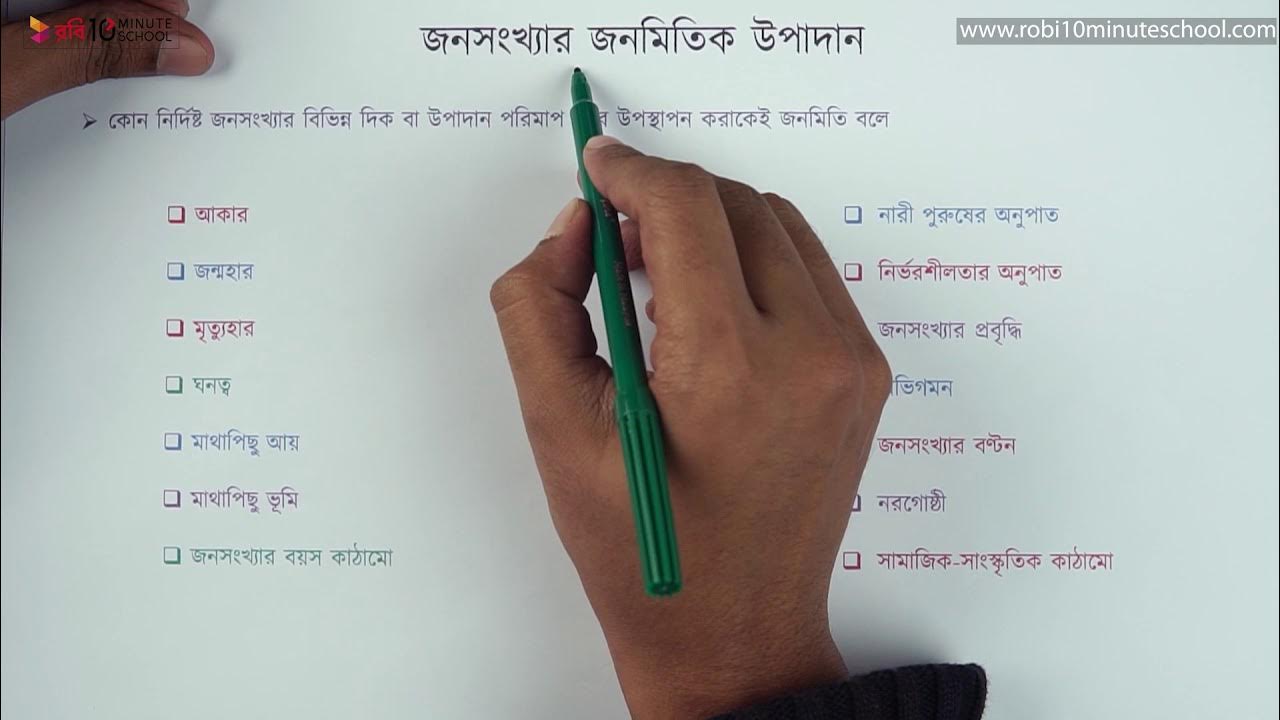 রবি 10 MINUTE SCHOOL
www.robi10minuteschool.com
জনসংখ্যার জনমিতিক উপাদান
➢ কোন নির্দিষ্ট জনসংখ্যার বিভিন্ন দিক বা উপাদান পরিমাপ উপস্থাপন করাকেই জনমিতি বলে
❑ আকার
❑ জন্মহার
❑ মৃত্যুহার
❑ ঘনত্ব
❑ মাথাপিছু আয়
❑ মাথাপিছু ভূমি
❑ জনসংখ্যার বয়স কাঠামো
❑ নারী পুরুষের অনুপাত
❑ নির্ভরশীলতার অনুপাত
জনসংখ্যার প্রবৃদ্ধি
জনসংখ্যার বণ্টন
নরগোষ্ঠী
❑ সামাজিক-সাংস্কৃতিক কাঠামো